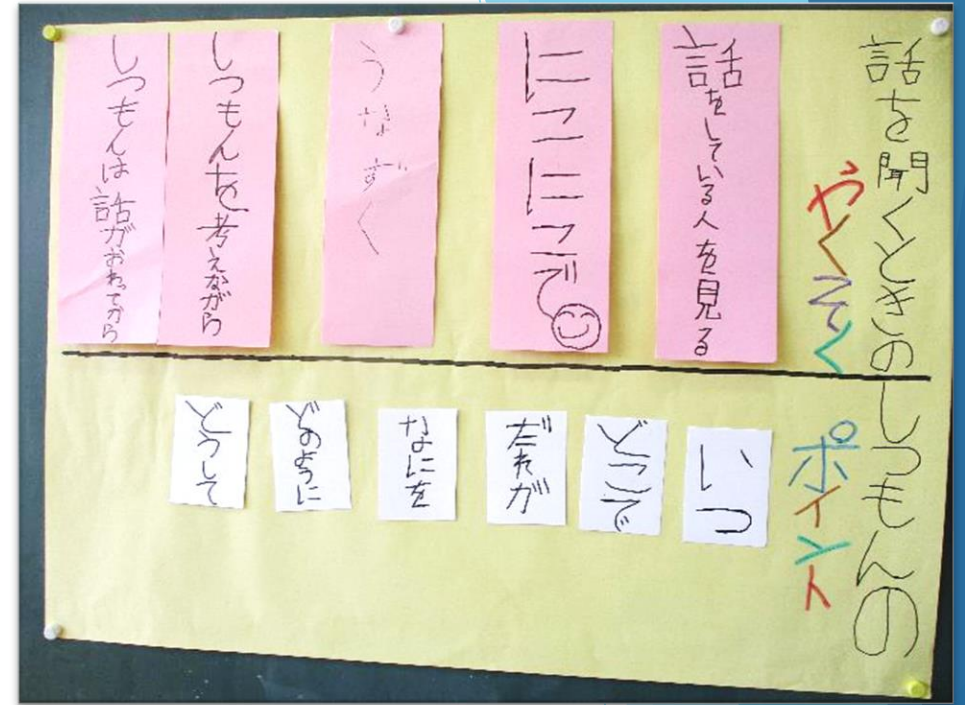 話を聞くときの
やくそく
話をしている人を見る
にこにこで
うなずく
しつもんを考えながら
しつもんは話がおわってから
しつもんの
ポイント
いつ
どこで
だれが
なにを
どのように
どうして